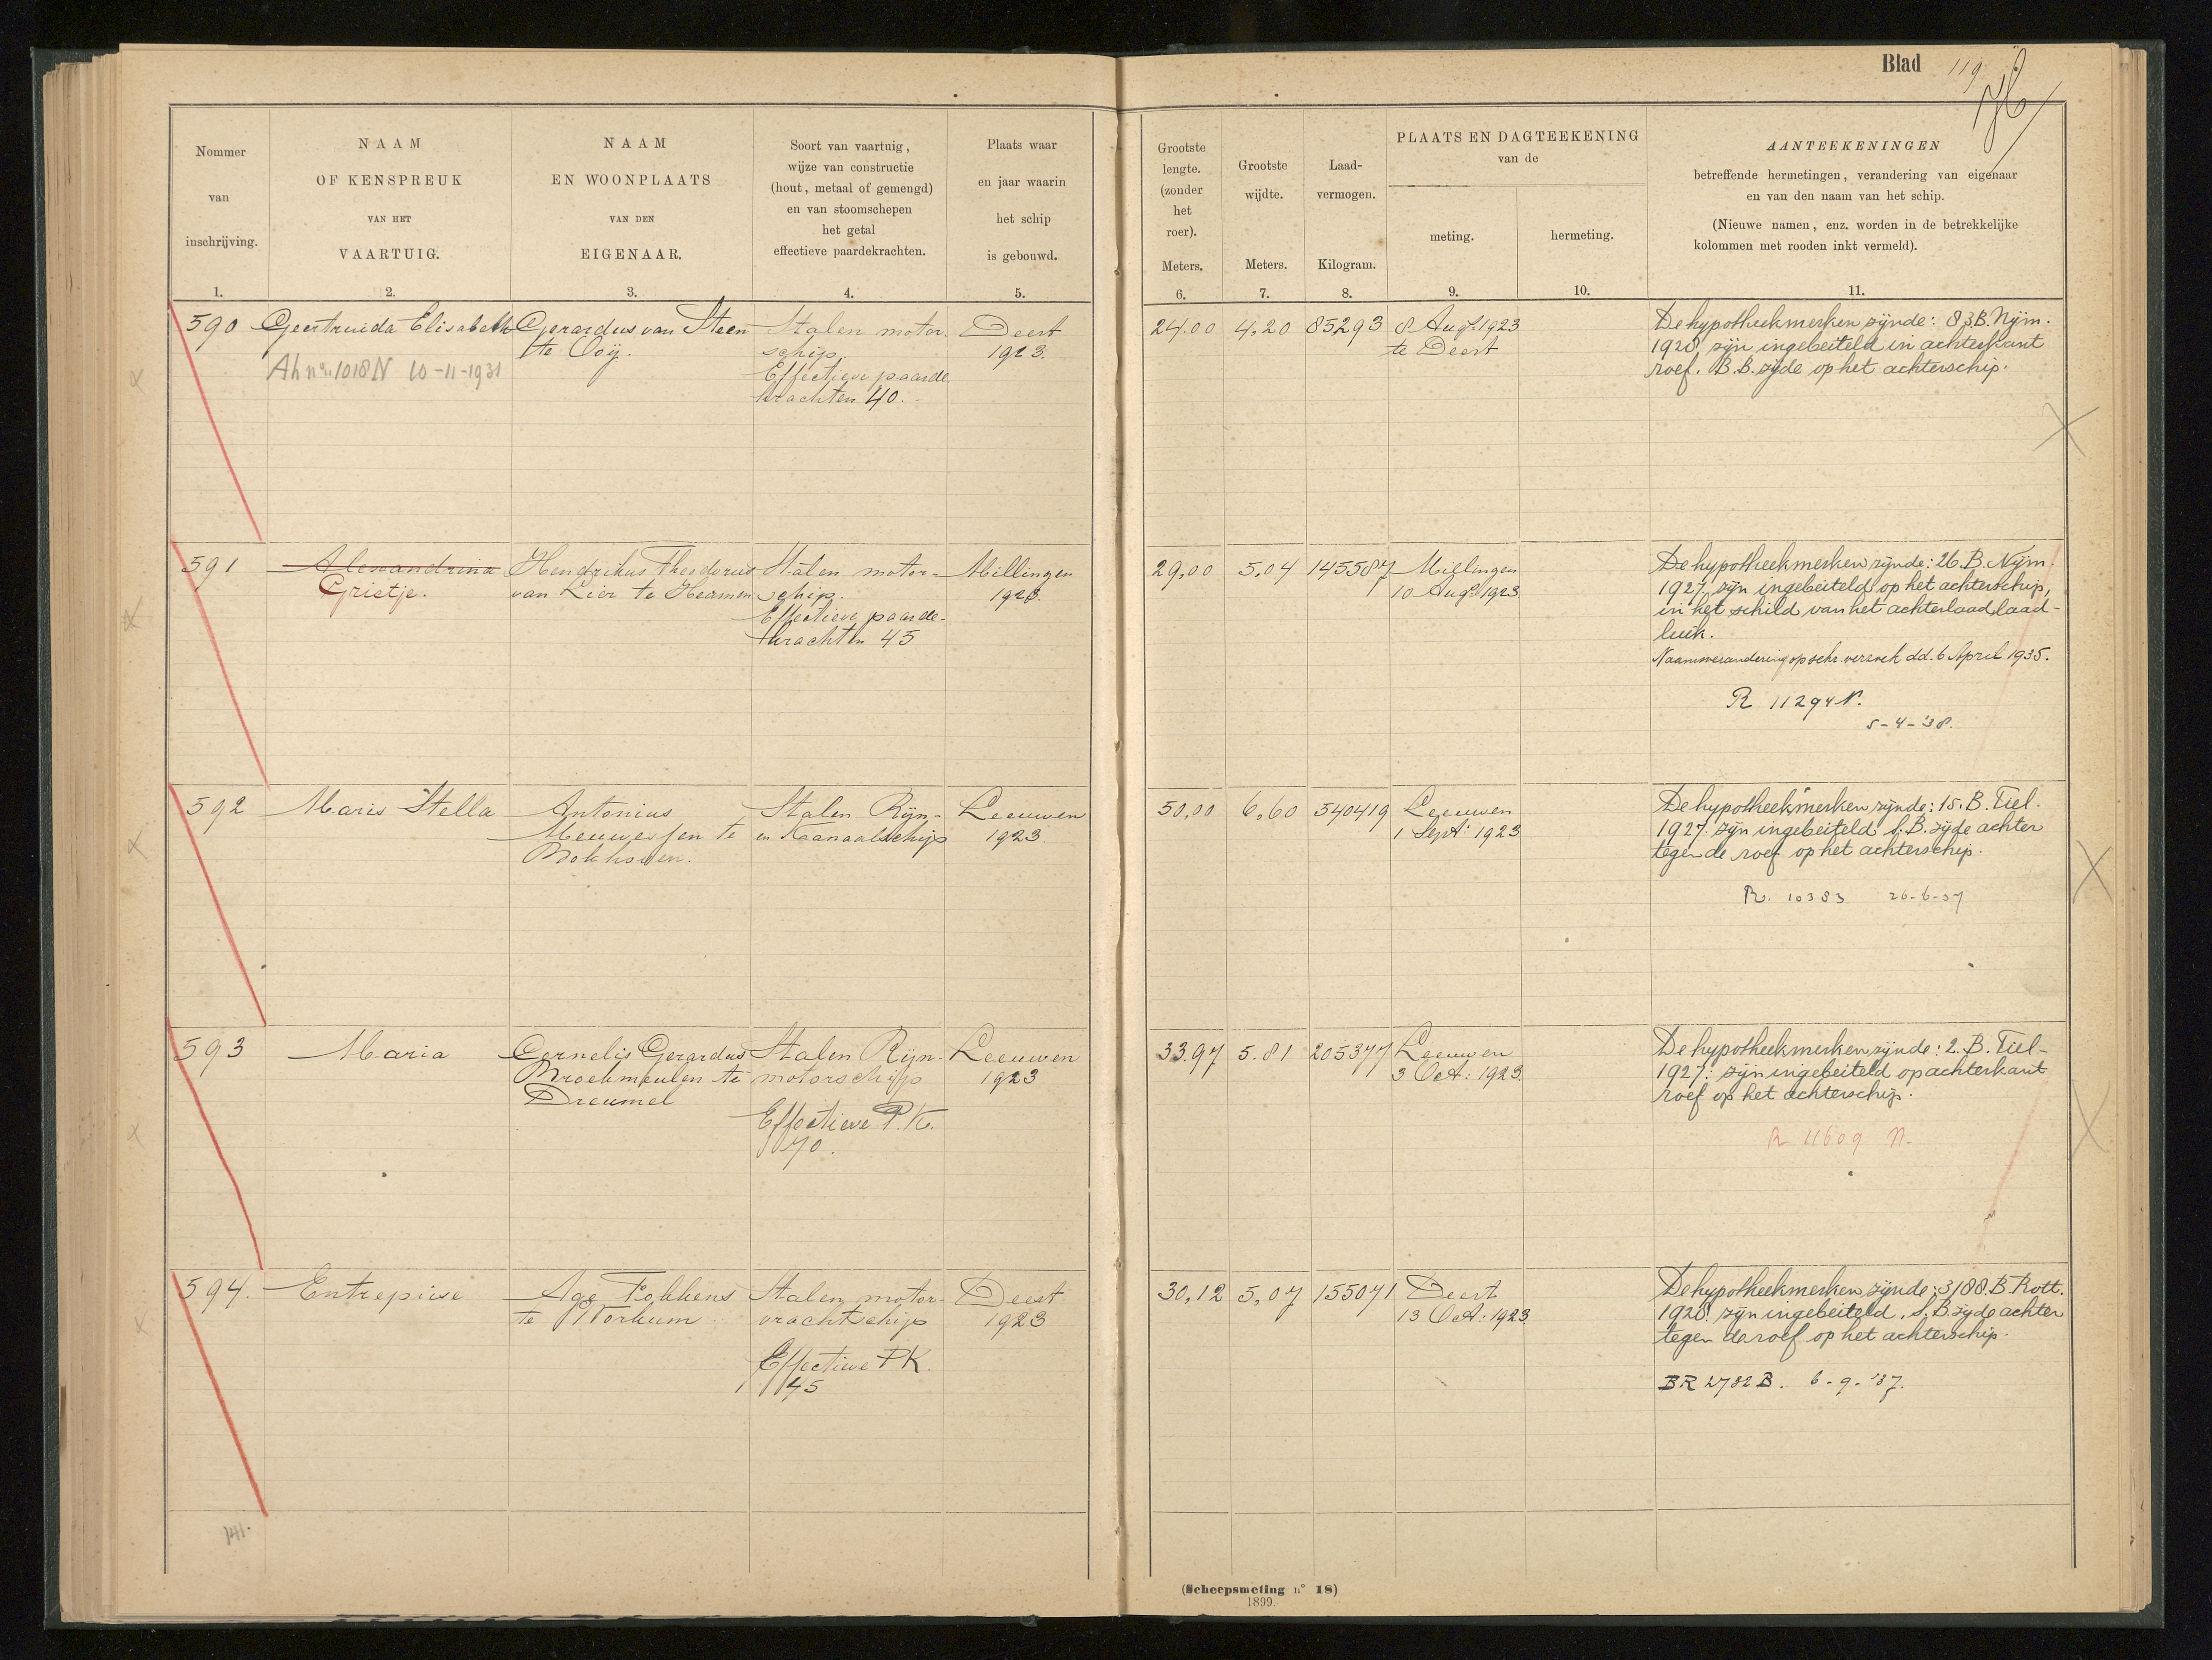 Blad 119
76
Nommer
van
inschrijving.
1.
NAAM
OF KENSPREUK
VAN HET
VAARTUIG.
2.
NAAM
EN WOONPLAATS
VAN DEN
EIGENAAR.
3.
Soort van vaartuig,
wijze van constructie
(hout, metaal of gemengd)
en van stoomschepen
het getal
effectieve paardekrachten.
4.
Plaats waar
en jaar waarin
het schip
is gebouwd.
5.
Grootste
lengte.
(zonder
het
roer).
Meters.
6.
Grootste
wijdte.
Meters.
7.
Laad-
vermogen.
Kilogram.
8.
PLAATS EN DAGTEEKENING
van de
meting.
9.
hermeting.
10.
AANTEEKENINGEN
betreffende hermetingen, verandering van eigenaar
en van den naam van het schip.
(Nieuwe namen, enz. worden in de betrekkelijke
kolommen met rooden inkt vermeld).
11.
590
Geertruida Elisabeth
Ah nr. 1018 N 10-11-1931
Gerardus van Steen
te Ooij.
Stalen motor-
schip.
Effectieve paarde
krachten 40.
Deest
1923.
24.00
4.20
85293
8 Aug. 1923
te Deest
De hypotheekmerken zijnde: 83.B. Nijm.
1928, zijn ingebeiteld in achterkant
roef. B.B. zijde op het achterschip.
591
Alexandrina
Grietje.
Hendrikus Theodorus
van Lier te Heumen
Stalen motor-
schip.
Effectieve paarde-
krachten 45
Millingen
1923.
29,00
5,04
145587
Millingen
10 Aug. 1923
De hypotheekmerken zijnde: 26.B. Nijm.
1927, zijn ingebeiteld op het achterschip,
in het schild van het achterlaad laad-
luik.
Naamsverandering op schr. verzoek dd. 6 April 1935.
R 11294 N.
5-4-'38.
592
Maris Stella
Antonius
Meuwessen te
Bokhoven.
Stalen Rijn-
en Kanaalschip
Leeuwen
1923.
50,00
6,60
340419
Leeuwen
1 Sept: 1923
De hypotheekmerken zijnde: 15.B. Tiel.
1927. zijn ingebeiteld S.B. zijde achter
tegen de roef op het achterschip.
R. 10383 26-6-37
593
Maria
Cornelis Gerardus
Broekmeulen te
Dreumel
Stalen Rijn-
motorschip
Effectieve P.K.
70.
Leeuwen
1923
33.97
5.81
205377
Leeuwen
3 Oct: 1923.
De hypotheekmerken zijnde: 2.B. Tiel-
1927: zijn ingebeiteld op achterkant
roef op het achterschip.
R 11609 N.
594.
Entrepise
Age Fokkens
te Workum
Stalen motor-
vrachtschip
Effectieve PK.
45
Deest
1923
30,12
5,07
155071
Deest
13 Oct: 1923
De hypotheekmerken zijnde: 3188.B. Rott.
1928. zijn ingebeiteld, S.B. zijde achter
tegen de roef op het achterschip.
BR 2782 B. 6-9-'37.
141.
(Scheepsmeting n° 18)
1899.